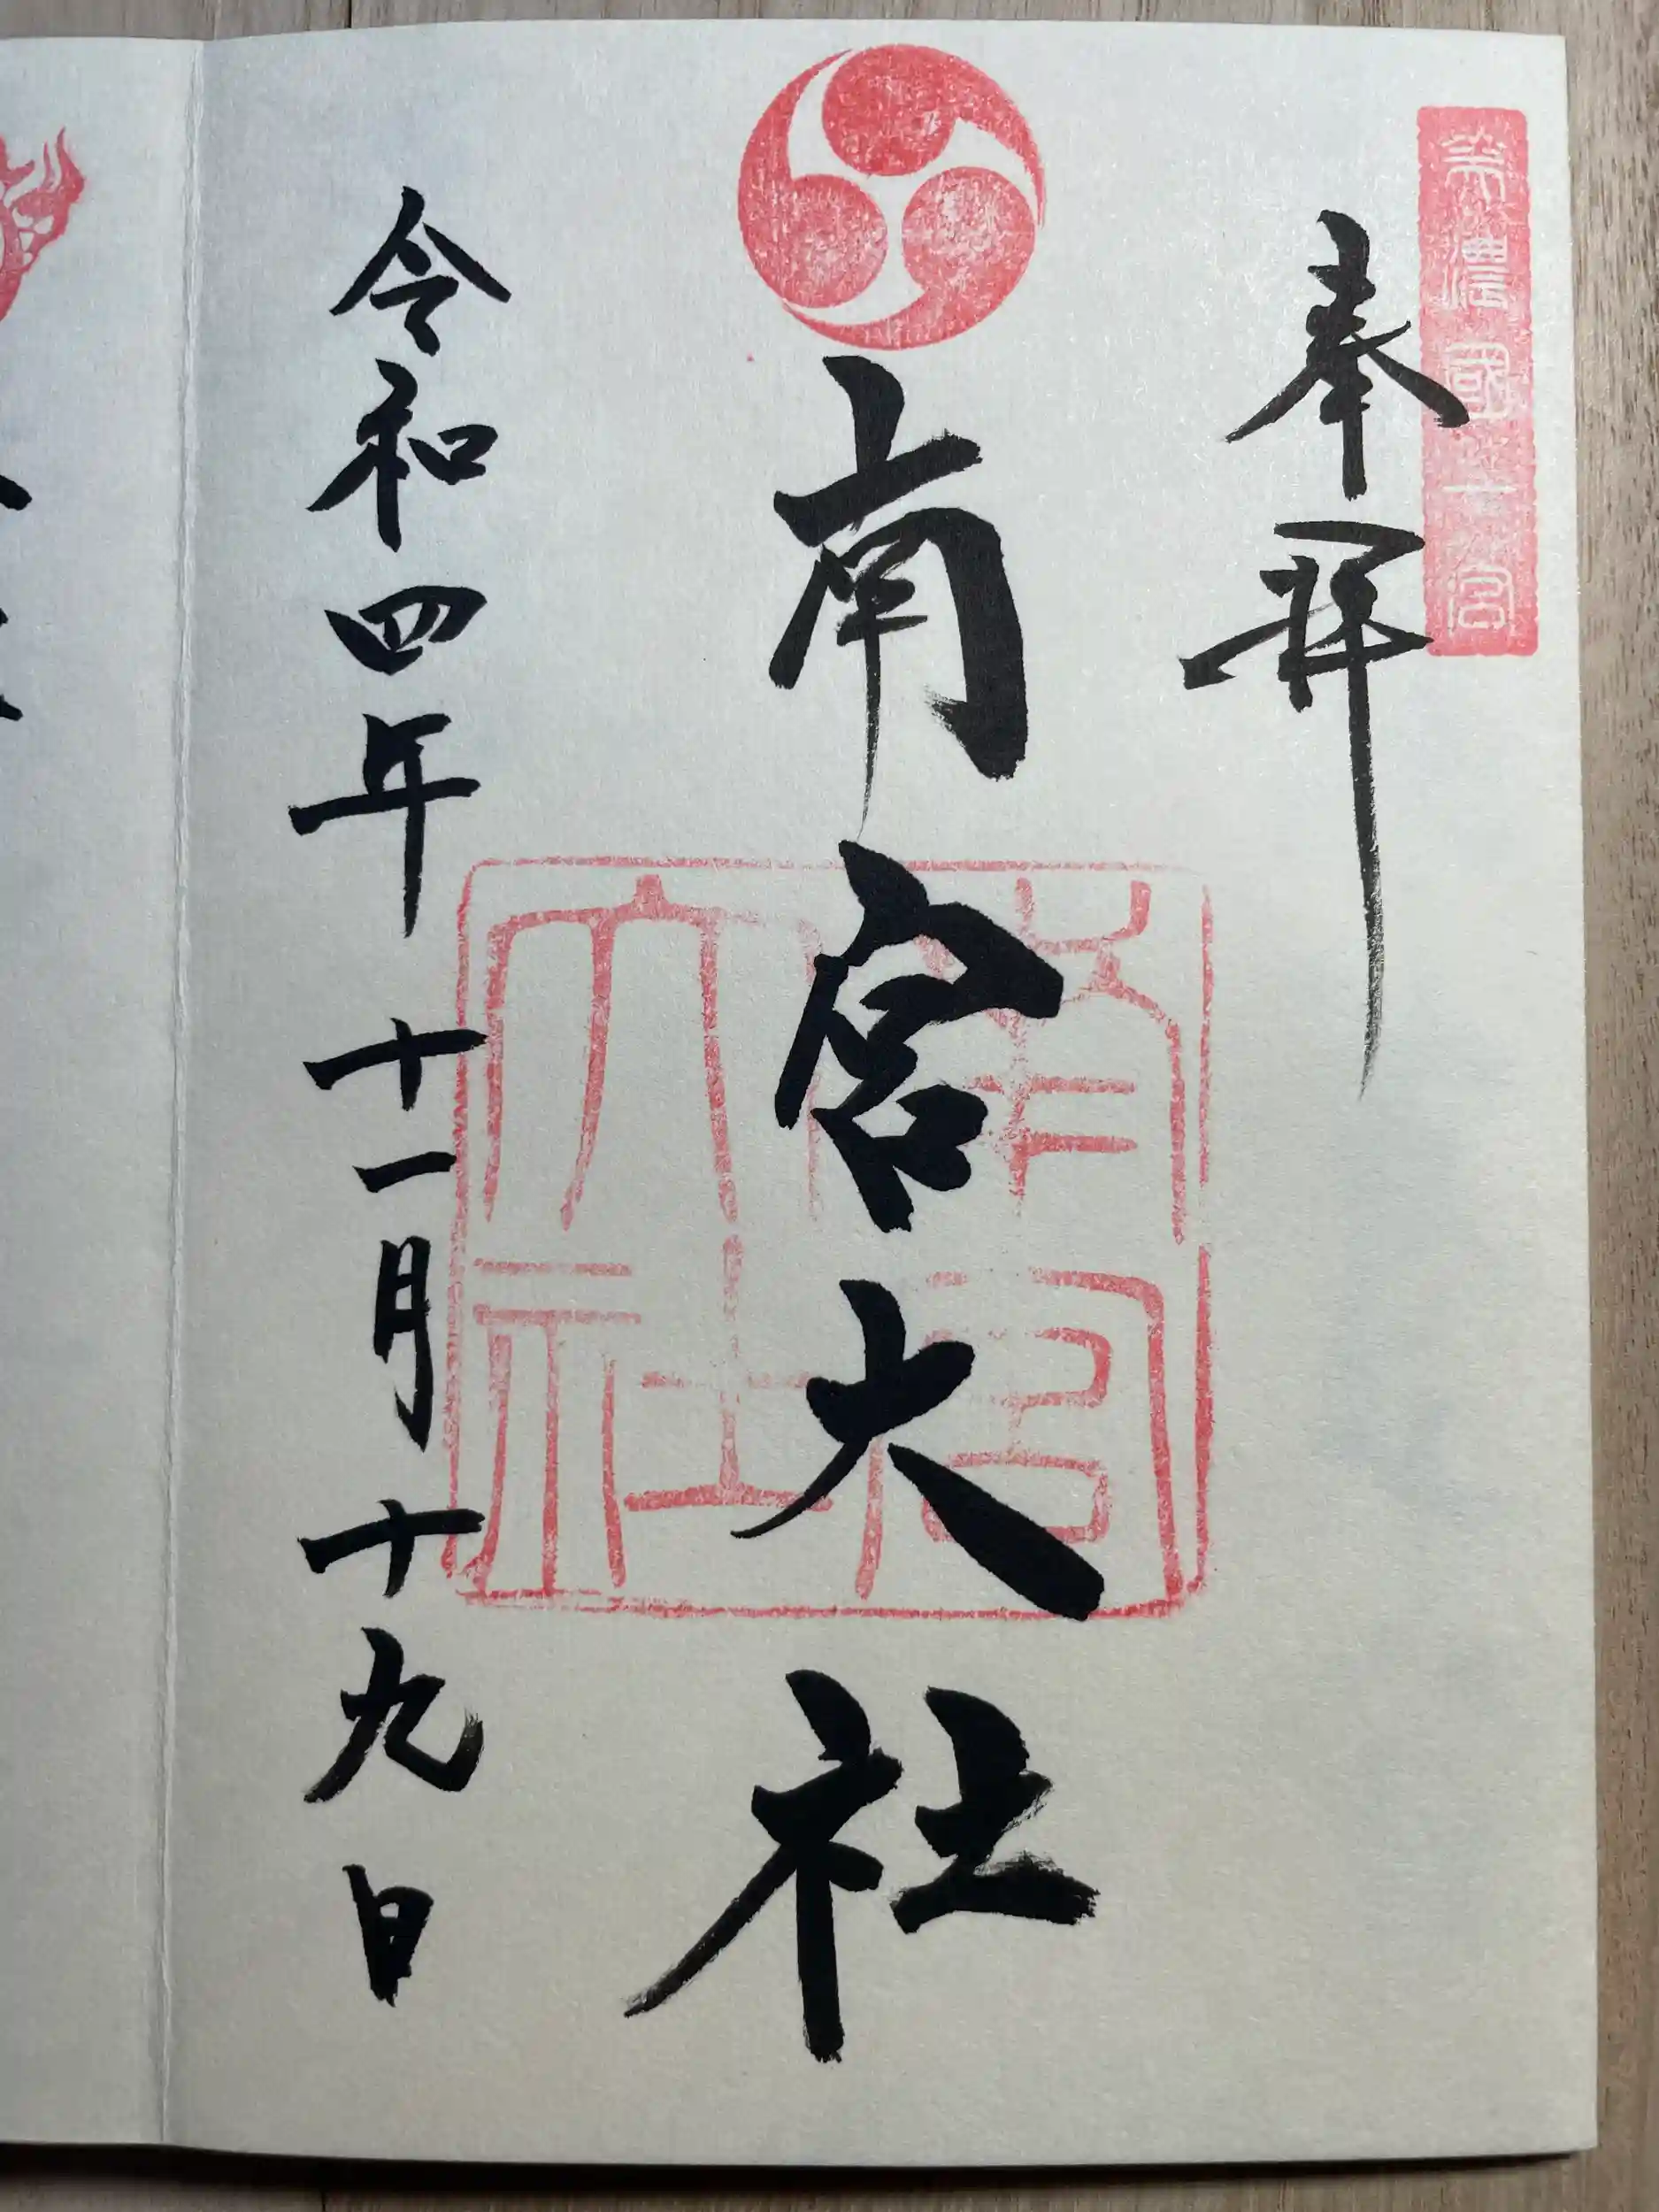 美濃國一之宮
奉拝
南宮大社
南宮
大社
令和四年十一月十九日